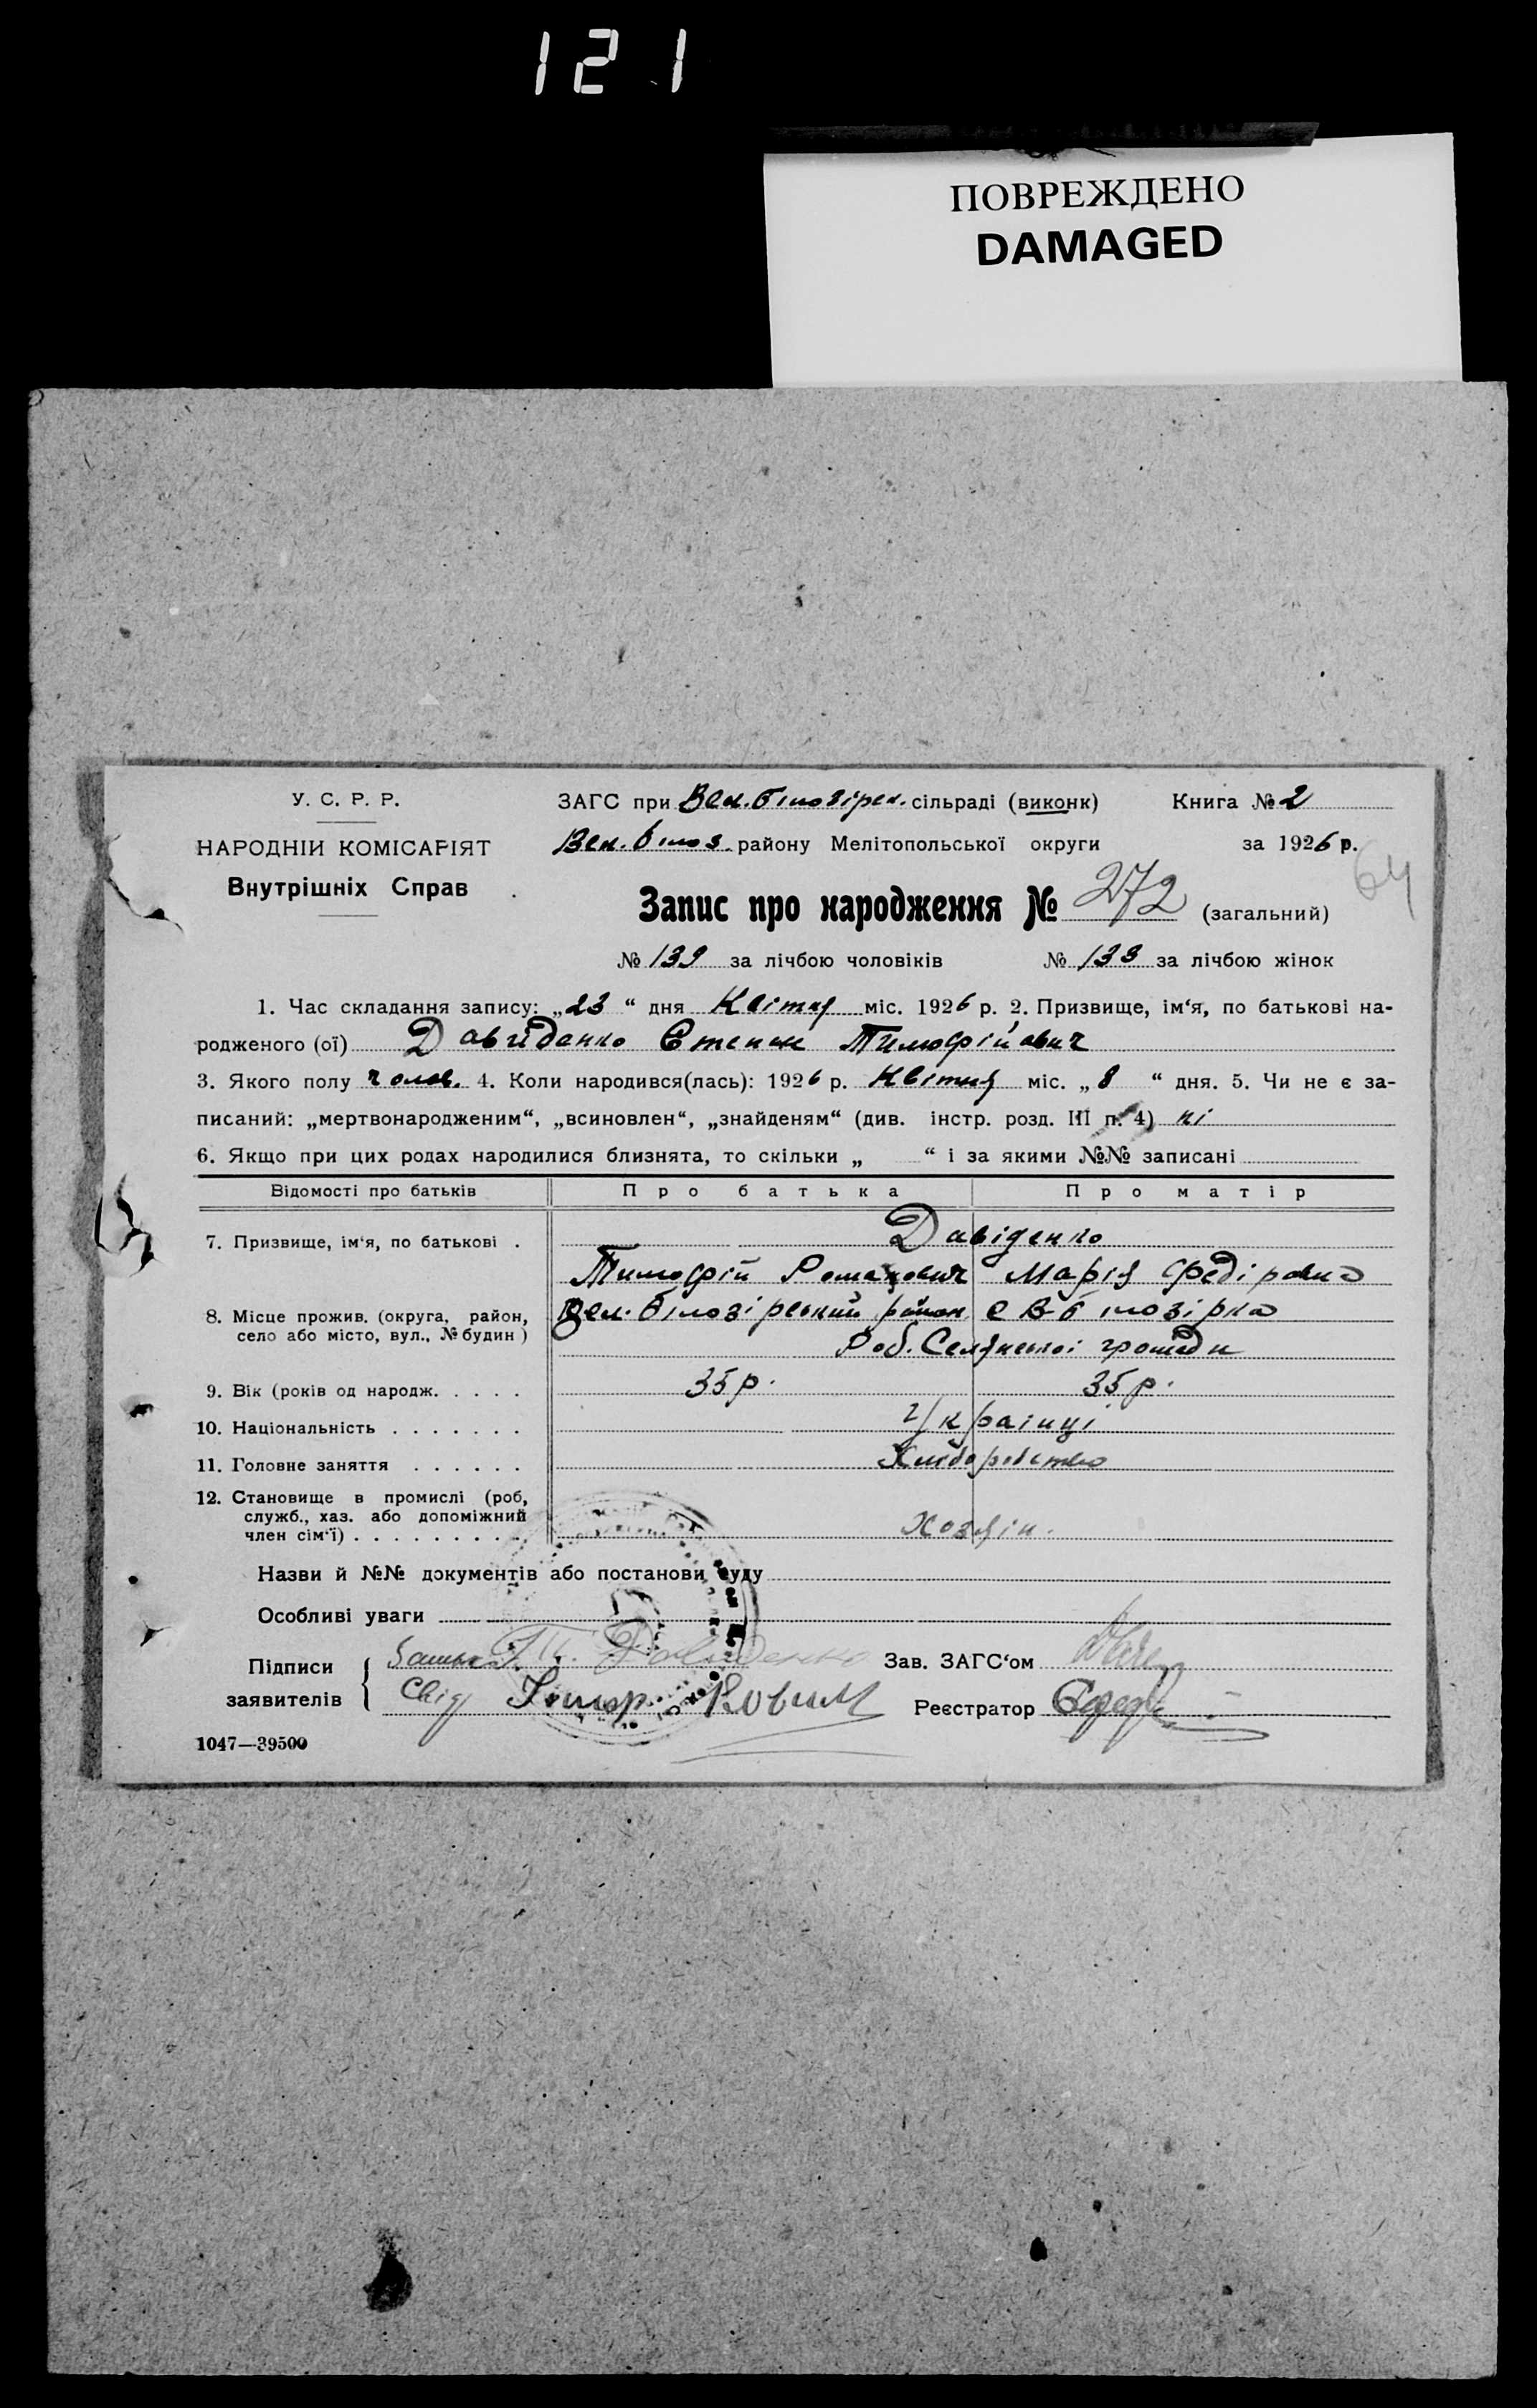 121
ПОВРЕЖДЕНО
DAMAGED
У. С. Р. Р.
НАРОДНІЙ КОМІСАРІЯТ
Внутрішніх Справ
ЗАГС при Вел. Білозірск. сільраді (виконк) Книга № 2
Вел. Білоз. району Мелітопольської округи за 1926 р.
64
Запис про народження № 272 (загальний)
№ 139 за лічбою чоловіків № 133 за лічбою жінок
1. Час складання запису: „23“ дня Квітня міс. 1926 р. 2. Призвище, ім‘я, по батькові на-
родженого (ої) Давиденко Степан Тимофійович
3. Якого полу чолов. 4. Коли народився(лась): 1926 р. Квітня міс. „8“ дня. 5. Чи не є за-
писаний: „мертвонародженим“, „всиновлен“, „знайденям“ (див. інстр. розд. III п. 4) ні
6. Якщо при цих родах народилися близнята, то скільки „ “ і за якими №№ записані
Відомості про батьків Про батька Про матір
7. Призвище, ім‘я, по батькові . Давіденко
Тимофій Романович Марія Федіровна
8. Місце прожив. (округа, район,
село або місто, вул., № будин)
Вел. Білозірський район с В-Білозірка
Роб. Селянської громади
9. Вік (років од народж. . . . . 35 р. 35 р.
10. Національність . . . . . . . Українці
11. Головне заняття . . . . . . Хліборобство
12. Становище в промислі (роб,
служб., хаз. або допоміжний
член сім‘ї) . . . . . . . . . Хозяїн.
Назви й №№ документів або постанови суду
Особливі уваги
Підписи
заявителів
Давиденко
Свід
Зав. ЗАГС‘ом
Реєстратор
1047—39500